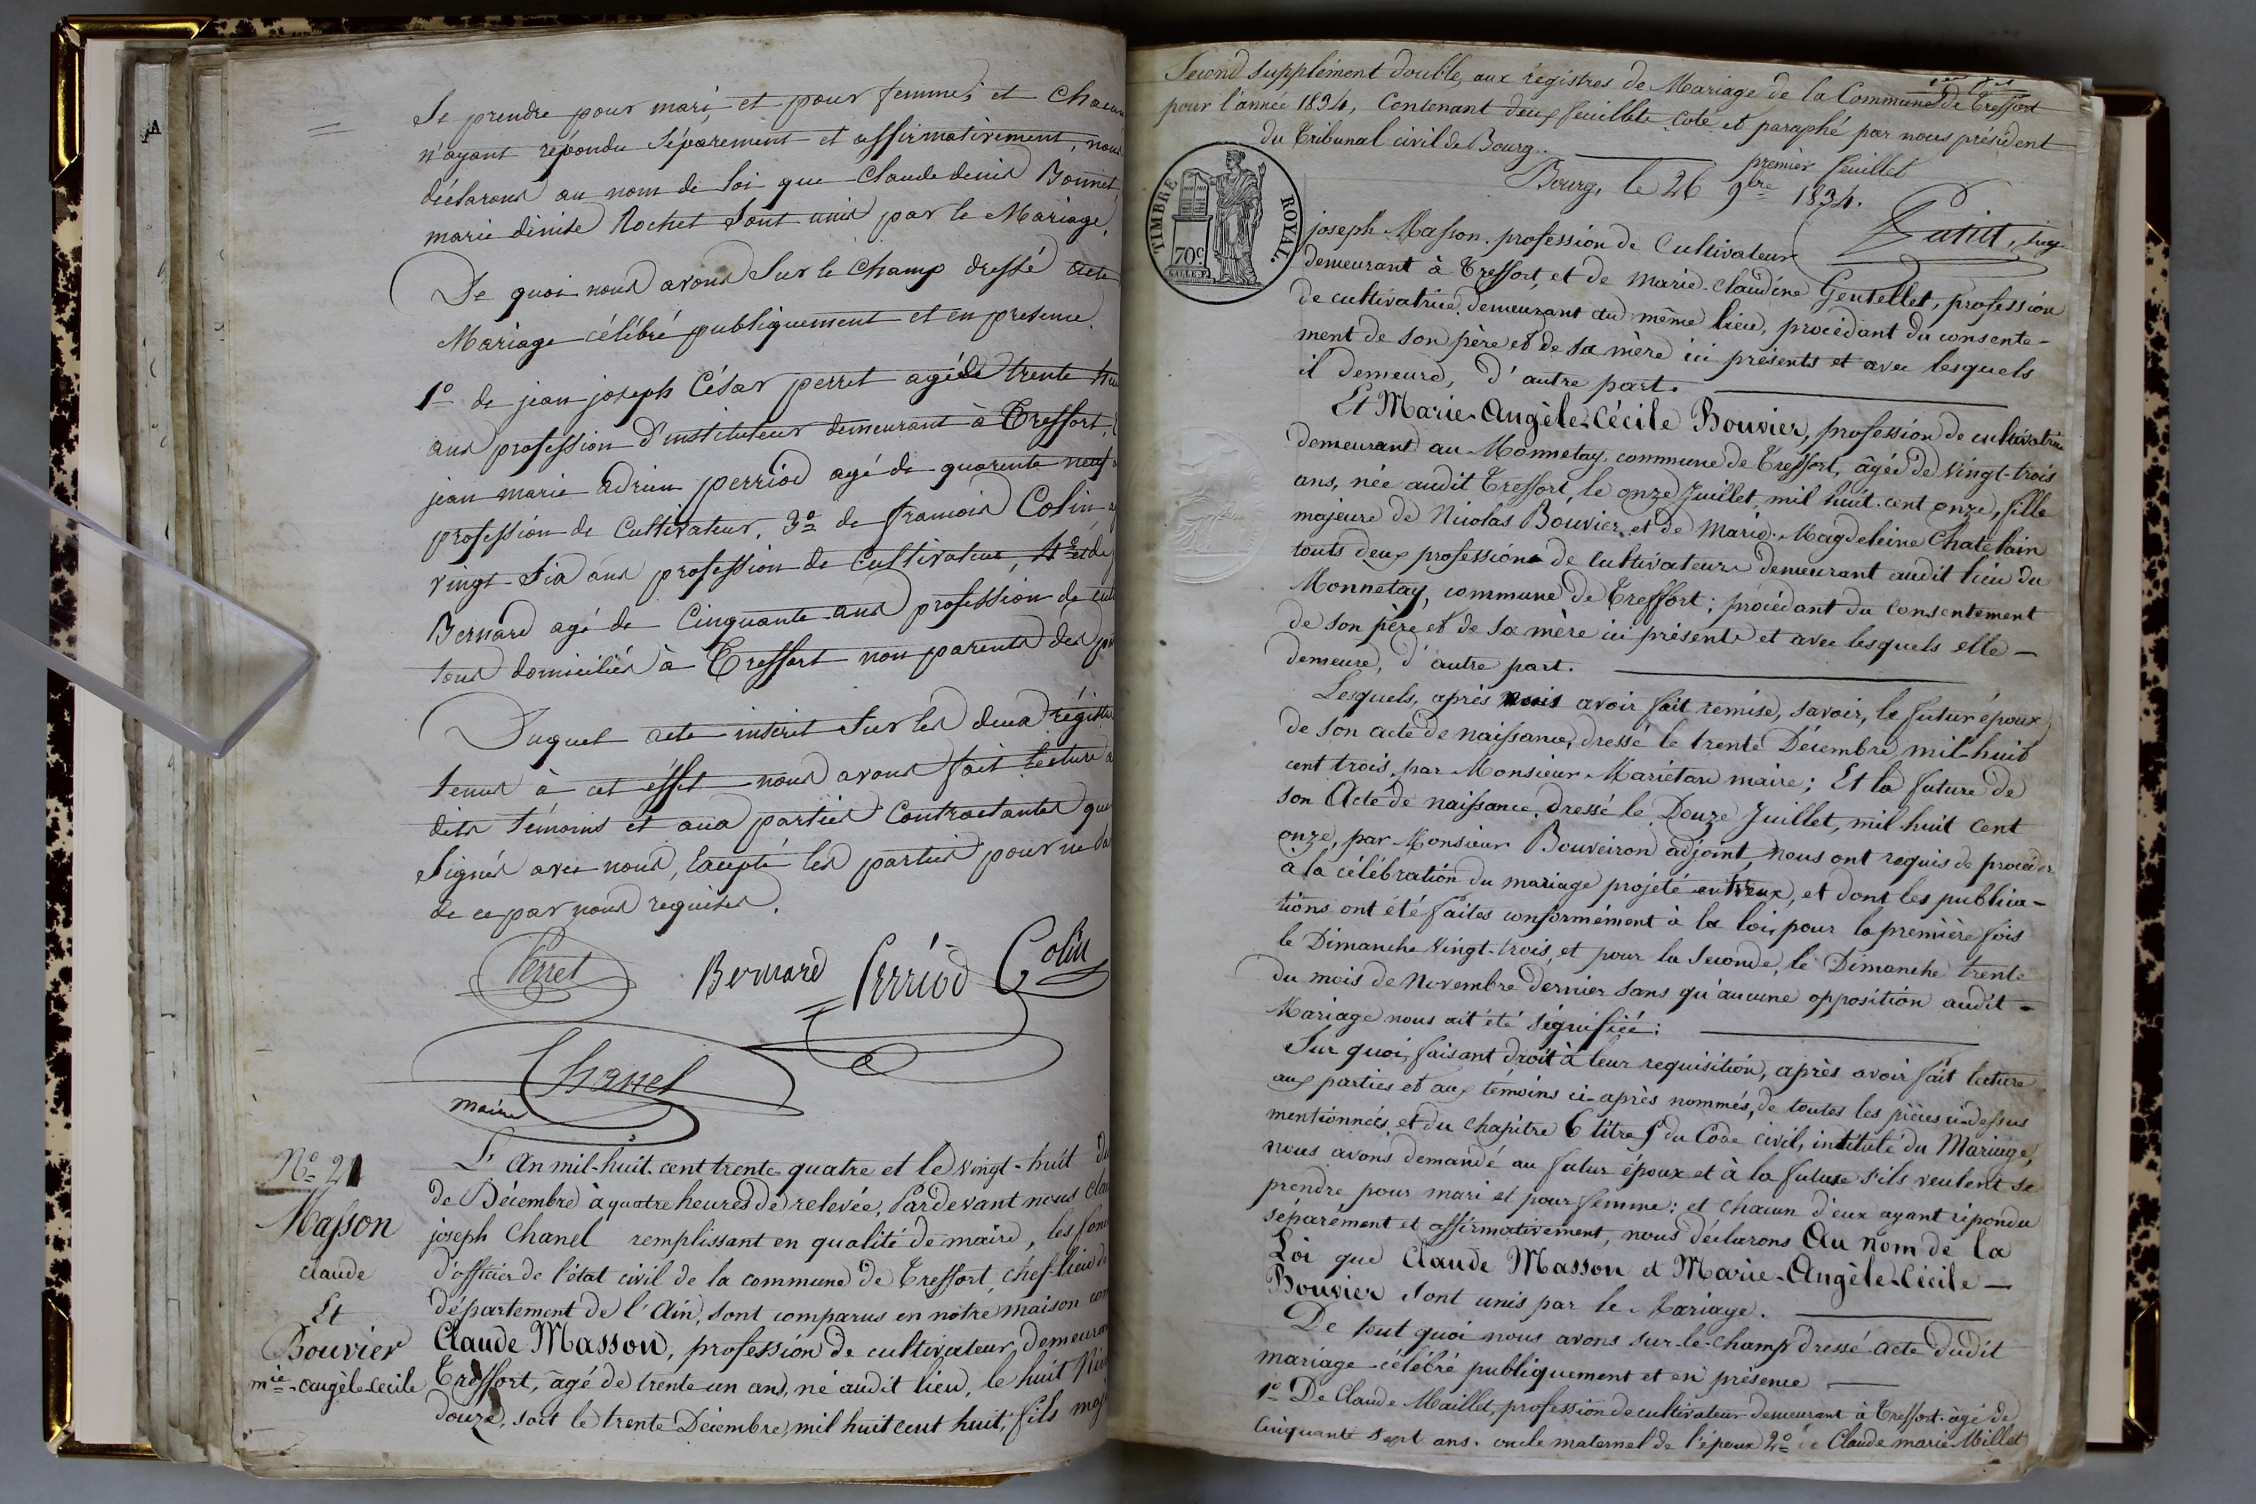 Se prendre pour mari, et pour femme, et Chacun
n'ayant répondu Séparement et affirmativement, nous
déclarons au nom de loi que Claude denis Bonnet,
marie denise Rochet Sont unis par le Mariage,
De quoi nous avons Sur le Champ dressé acte
Mariage célébré publiquement et en presence
1º de jean joseph César perret agé de trente
ans profession d'instituteur demeurant à Treffort,
jean marie adrien perriod agé de quarente neuf
profession de Cultivateur, 3º de francois Colin
vingt Six ans profession de Cultivateur, 4º et de
Bernard agé de Cinquante ans profession de
tous domiciliés à Treffort non parents des
Duquel acte inscrit Sur les deux régistres
tenus à cet éffet nous avons fait lecture
dits témoins et aux parties Contractantes
Signés avec nous, Excepté les parties pour ne
de ce par nous requises.
Perret Bernard Perriod Colin
Chanel
maire
Nº 21
Masson
claude
Et
Bouvier
mie-angèle-cécile
L'An mil-huit-cent trente-quatre et le vingt-huit du
de Décembre à quatre heures de relevée, Pardevant nous
joseph Chanel remplissant en qualité de maire, les
d'officier de l'état civil de la commune de Treffort, chef-lieu de
département de l'Ain, sont comparus en notre maison
Claude Masson, profession de cultivateur, demeurant
Treffort, âgé de trente-un ans, né audit lieu, le huit
douze, soit le trente Décembre, mil huit cent huit, fils
Second supplément double, aux registres de Mariage de la Commune de Treffort
pour l'année 1834, Contenant deux feuillets coté et paraphé par nous président
du Tribunal civil de Bourg.
premier feuillet
Bourg, le 26 9bre 1834.
TIMBRE ROYAL.
70c
joseph Masson, profession de Cultivateur
demeurant à Treffort, et de Marie-claudine Gentellet, profession
de cultivatrice, demeurant au même lieu, procédant du consente-
ment de son père et de sa mère ici présents et avec lesquels
il demeure, d'autre part.
Et Marie-Angèle-Cécile Bouvier, profession de cultivatrice
demeurant au Monnetay, commune de Treffort, âgée de vingt-trois
ans, née audit Treffort, le onze Juillet, mil huit-cent onze, fille
majeure de Nicolas Bouvier et de Marie-Magdeleine Chatelain
touts deux profession de cultivateurs demeurant audit lieu du
Monnetay, commune de Treffort; procédant du consentement
de son père et de sa mère ici présents et avec lesquels elle
demeure, d'autre part.
Lesquels, après nous avoir fait remise, savoir, le futur époux
de son acte de naissance, dressé le trente Décembre mil-huit
cent trois, par Monsieur Mariétan maire; Et la future de
son Acte de naissance, dressé le Douze Juillet, mil huit cent
onze, par Monsieur Bouveiron adjoint, nous ont requis de procéder
à la célébration du mariage projeté entreux, et dont les publica-
tions ont été faites conformément à la loi, pour la première fois
le Dimanche vingt-trois, et pour la seconde, le Dimanche trente
du mois de Novembre dernier sans qu'aucune opposition audit
Mariage nous ait été signifiée:
Sur quoi, faisant droit à leur requisition, après avoir fait lecture
aux parties et aux témoins ci-après nommés, de toutes les pièces ci-dessus
mentionnées, et du chapitre 6 titre 5 du Code civil, intitulé du Mariage,
nous avons demandé au futur époux et à la future s'ils veulent se
prendre pour mari et pour femme: et chacun d'eux ayant répondu
séparément et affirmativement, nous déclarons Au nom de la
Loi que Claude Masson et Marie-Angèle-Cécile
Bouvier sont unis par le Mariage.
De tout quoi nous avons sur-le-champ dressé acte dudit
mariage célébré publiquement et en présence
1º De Claude Maillet, profession de cultivateur demeurant à Treffort, âgé de
Cinquante sept ans, oncle maternel de l'époux 2º de Claude marie Millet